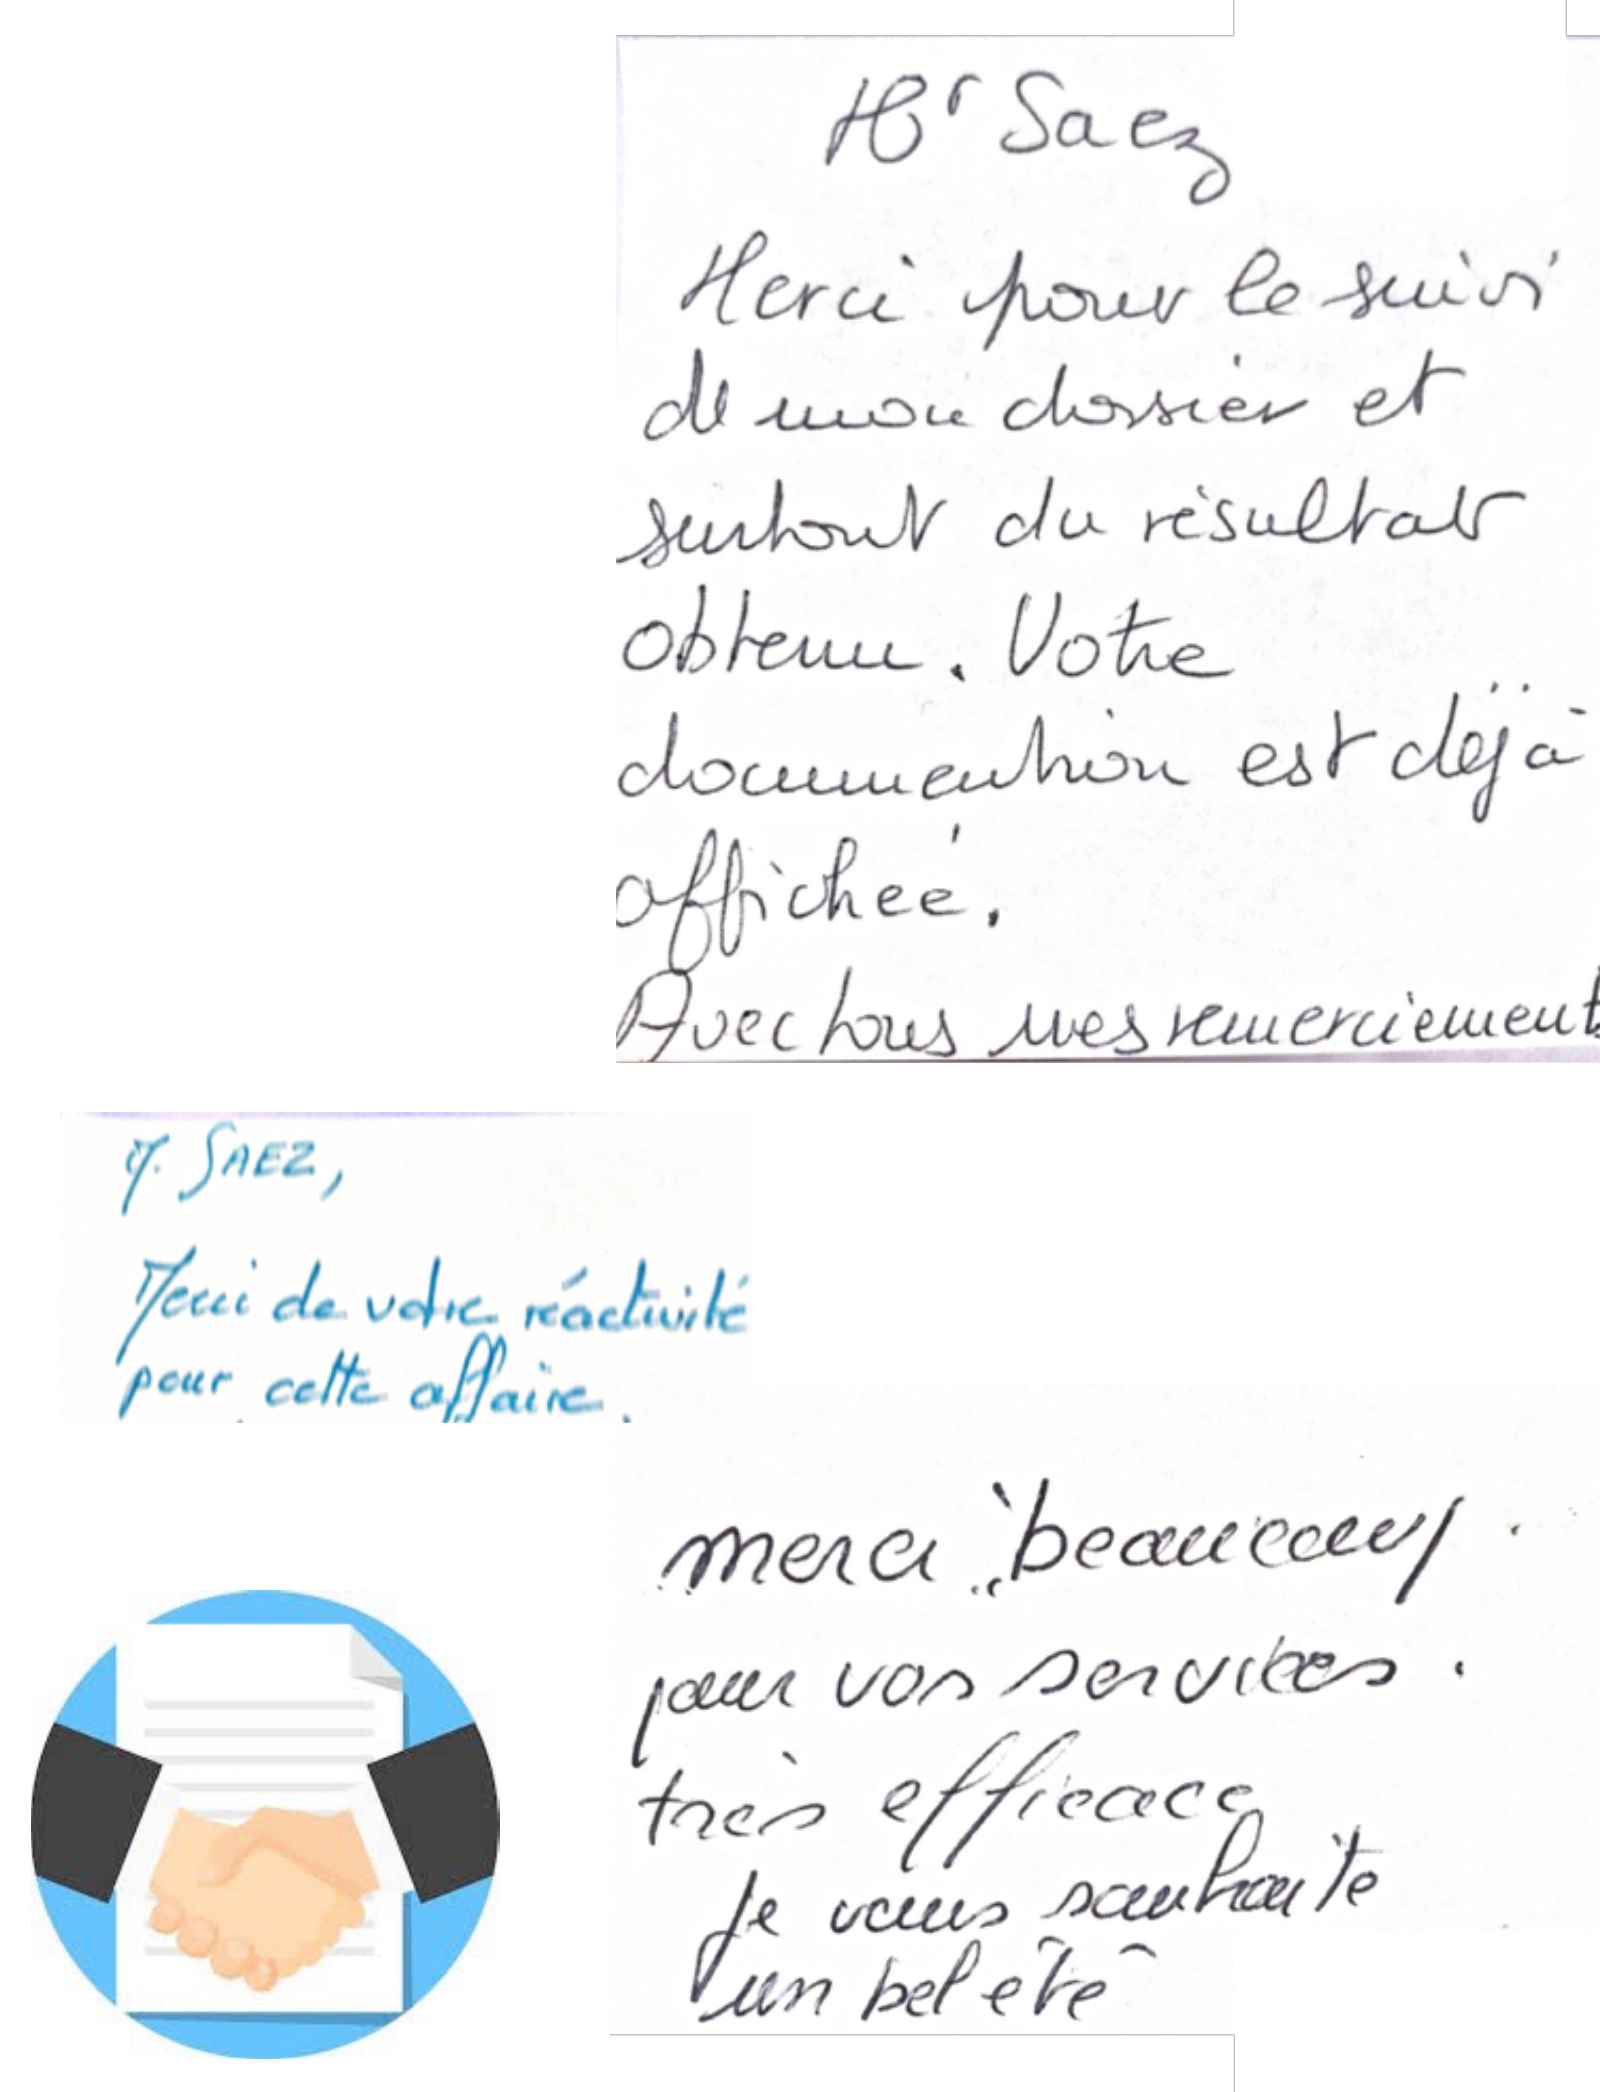 Mr Saez
Merci pour le suivi
de mon dossier et
surtout du résultat
obtenu. Votre
documention est déjà
affichée.
Avec tous mes remerciements
M. SAEZ,
Merci de votre réactivité
pour cette affaire.
merci beaucoup
pour vos services.
très efficace
Je vous souhaite
un bel été